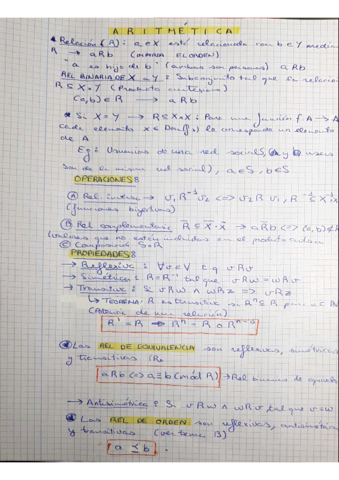 ARITMÉTICA
Relación (R): a∈X está relacionada con b∈Y mediante
R → aRb (IMPORTA EL ORDEN)
"a es hijo de b" (ambos son personas) aRb
REL BINARIA DE X → Y: Subconjunto tal que la relación
R ⊆ X×Y (Producto cartesiano)
(a,b)∈R → aRb
Si X=Y → R⊆X×X: Para una función f: A→A
cada elemento x∈Dom(f) le corresponde un elemento
de A
Eg: Usuarios de una red social S, (A y B users
son de la misma red social), a∈S, b∈S
OPERACIONES:
Ⓐ Rel inversa → v₁R⁻¹v₂ <=> v₂Rv₁, R⁻¹⊆X×X
(funciones biyectivas)
Ⓑ Rel complementaria R̅⊆X×X → aR̅b <=> (a,b)∉R
(valores que no están incluidos en el producto
Ⓒ Composición S∘R
PROPIEDADES:
→ Reflexiva: ∀v∈V tq vRv
→ Simétrica: R=R⁻¹ tal que vRw = wRv
→ Transitiva: Si vRw ∧ wRz => vRz
↳ TEOREMA: R es transitiva si Rⁿ⊆R para n
de una relación)
R¹=R => Rⁿ=R∘Rⁿ⁻¹
Las REL DE EQUIVALENCIA son reflexivas, simétricas
y transitivas
aRb <=> a≡b (mód R) → Rel binaria de
→ Antisimétrica: Si vRw ∧ wRv, tal que v=w
Las REL DE ORDEN son reflexivas, antisimétricas
y transitivas (ver tema
a ≼ b